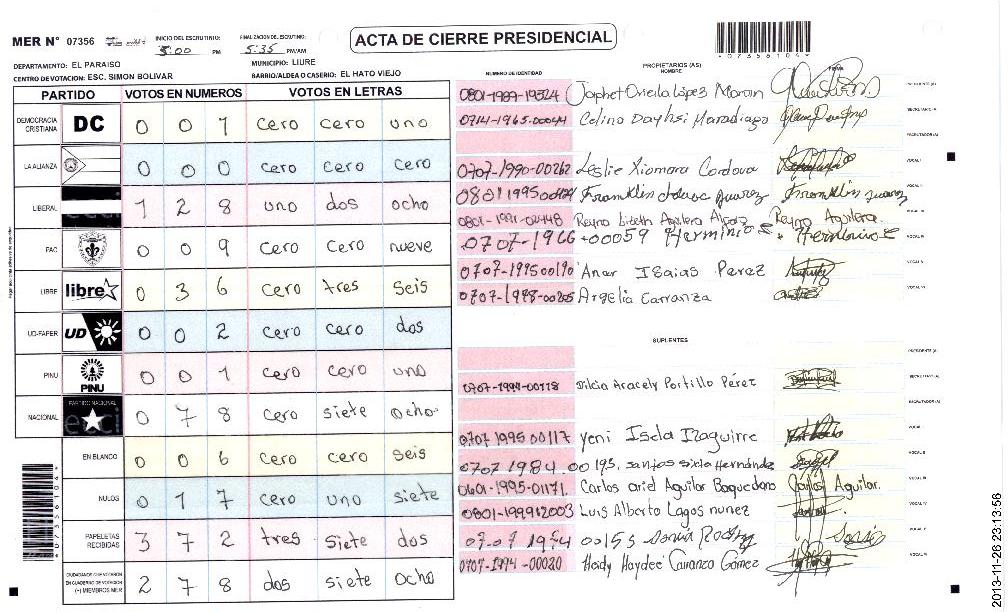 ACTA DE CIERRE PRESIDENCIAL
MER N° 07356
INICIO DEL ESCRUTINIO: 5:00 PM
FINALIZACION DEL ESCRUTINIO: 5:35 PM/AM
DEPARTAMENTO: EL PARAISO
MUNICIPIO: LIURE
CENTRO DE VOTACION: ESC. SIMON BOLIVAR
BARRIO/ALDEA O CASERIO: EL HATO VIEJO
PARTIDO VOTOS EN NUMEROS VOTOS EN LETRAS
DEMOCRACIA CRISTIANA DC 0 0 1 cero cero uno
LA ALIANZA 0 0 0 cero cero cero
LIBERAL 1 2 8 uno dos ocho
PAC 0 0 9 cero cero nueve
LIBRE libre 0 3 6 cero tres seis
UD-FAPER UD 0 0 2 cero cero dos
PINU PINU 0 0 1 cero cero uno
NACIONAL PARTIDO NACIONAL 0 7 8 cero siete ocho
EN BLANCO 0 0 6 cero cero seis
NULOS 0 1 7 cero uno siete
PAPELETAS RECIBIDAS 3 7 2 tres siete dos
CIUDADANOS QUE VOTARON EN CUADERNO DE VOTACION (+) MIEMBROS MER 2 7 8 dos siete ocho
*07356104*
NUMERO DE IDENTIDAD PROPIETARIOS (AS) NOMBRE FIRMA
0801-1989-19324 Japhet Oneila López Moran PRESIDENTE (A)
0714-1965-00044 Celina Dayhsi Maradiaga SECRETARIO/A
ESCRUTADOR(A)
0707-1990-00262 Leslie Xiomara Cordova VOCAL I
Franklin Franklin VOCAL II
0801-1991-02448 Reyna Lizeth Aguilera Reyna Aguilera VOCAL III
0707-1966-00059 Herminio E Herminio E VOCAL IV
0707-1995 00190 Aner Isaias Perez VOCAL V
0707-1988-00205 Argelia Carranza VOCAL VI
SUPLENTES
PRESIDENTE (A)
0707-1994-00118 Silcia Aracely Portillo Pérez SECRETARIO (A)
ESCRUTADOR (A)
0707 1995 00117 Yeni Isela Izaguirre VOCAL I
0707 1984 00195 santos sixta Hernández VOCAL II
0601-1995-01171 Carlos ariel Aguilar Baquedano Carlos Aguilar. VOCAL III
0801-199912003 Luis Alberto Lagos nunez VOCAL IV
0707 1974 00153 Sonia Sonia VOCAL V
0707-1994-00020 Heidy Haydee Carranza Gómez VOCAL VI
*07356104*
2013-11-26 23:13:56